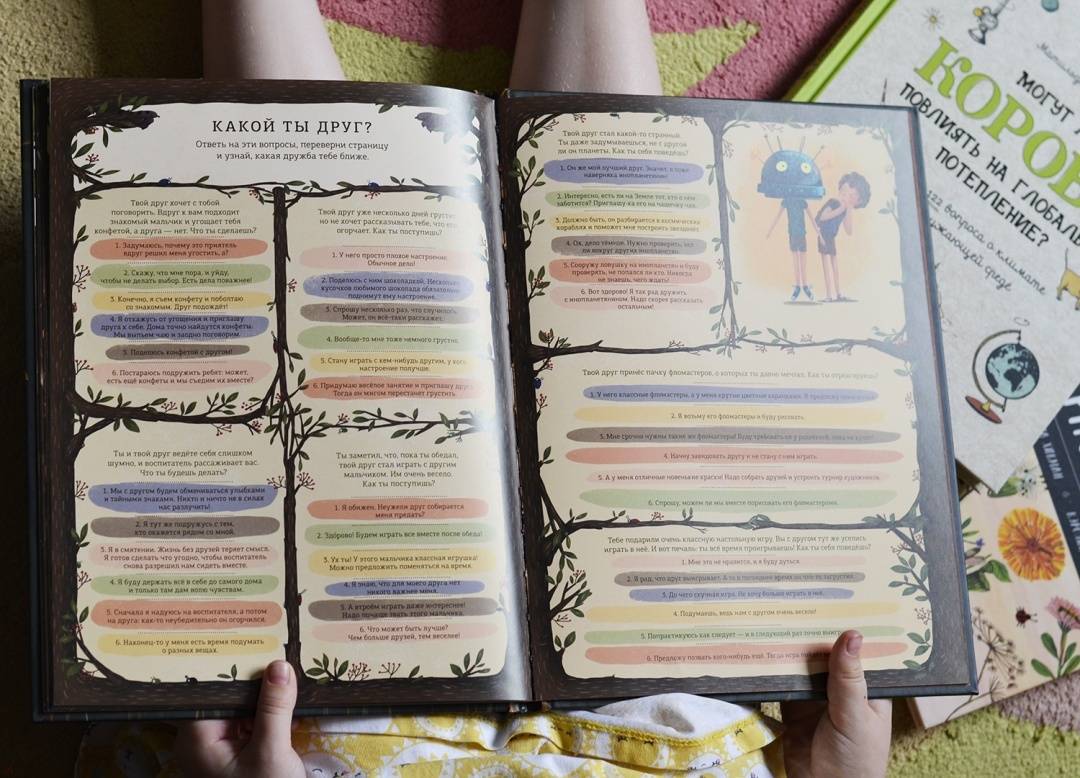 КАКОЙ ТЫ ДРУГ?
Ответь на эти вопросы, переверни страницу
и узнай, какая дружба тебе ближе.
Твой друг хочет с тобой
поговорить. Вдруг к вам подходит
знакомый мальчик и угощает тебя
конфетой, а друга — нет. Что ты сделаешь?
1. Задумаюсь, почему это приятель
вдруг решил меня угостить, а?
2. Скажу, что мне пора, и уйду,
чтобы не делать выбор. Есть дела поважнее!
3. Конечно, я съем конфету и поболтаю
со знакомым. Друг подождёт!
4. Я откажусь от угощения и приглашу
друга к себе. Дома точно найдутся конфеты.
Мы выпьем чаю и заодно поговорим.
5. Поделюсь конфетой с другом!
6. Постараюсь подружить ребят: может,
есть ещё конфеты и мы съедим их вместе?
Твой друг уже несколько дней грустит,
но не хочет рассказывать тебе, что его
огорчает. Как ты поступишь?
1. У него просто плохое настроение.
Обычное дело!
2. Поделюсь с ним шоколадкой. Несколько
кусочков любимого шоколада обязательно
поднимут ему настроение.
3. Спрошу несколько раз, что случилось.
Может, он всё-таки расскажет.
4. Вообще-то мне тоже немного грустно.
5. Стану играть с кем-нибудь другим, у кого
настроение получше.
6. Придумаю весёлое занятие и приглашу друга.
Тогда он мигом перестанет грустить.
Ты и твой друг ведёте себя слишком
шумно, и воспитатель рассаживает вас.
Что ты будешь делать?
1. Мы с другом будем обмениваться улыбками
и тайными знаками. Никто и ничто не в силах
нас разлучить!
2. Я тут же подружусь с тем,
кто окажется рядом со мной.
3. Я в смятении. Жизнь без друзей теряет смысл.
Я готов сделать что угодно, чтобы воспитатель
снова разрешил нам сидеть вместе.
4. Я буду держать всё в себе до самого дома
и только там дам волю чувствам.
5. Сначала я надуюсь на воспитателя, а потом
на друга: как-то неубедительно он огорчился.
6. Наконец-то у меня есть время подумать
о разных вещах.
Ты заметил, что, пока ты обедал,
твой друг стал играть с другим
мальчиком. Им очень весело.
Как ты поступишь?
1. Я обижен. Неужели друг собирается
меня предать?
2. Здорово! Будем играть все вместе после обеда!
3. Ух ты! У этого мальчика классная игрушка!
Можно предложить поменяться на время.
4. Я знаю, что для моего друга нет
никого важнее меня.
5. А втроём играть даже интереснее!
Надо почаще звать этого мальчика.
6. Что может быть лучше?
Чем больше друзей, тем веселее!
Твой друг стал какой-то странный.
Ты даже задумываешься, не с другой
ли он планеты. Как ты себя поведёшь?
1. Он же мой лучший друг. Значит, я тоже
наверняка инопланетянин!
2. Интересно, есть ли на Земле тот, кто о нём
заботится? Приглашу-ка его на чашечку чая.
3. Должно быть, он разбирается в космических
кораблях и поможет мне построить звездолёт.
4. Ох, дело тёмное. Нужно проверить, нет
ли вокруг других инопланетян.
5. Сооружу ловушку на инопланетян и буду
проверять, не попался ли кто. Никогда
не знаешь, чего ждать!
6. Вот здорово! Я так рад дружить
с инопланетянином. Надо скорее рассказать
остальным!
Твой друг принёс пачку фломастеров, о которых ты давно мечтал. Как ты отреагируешь?
1. У него классные фломастеры, а у меня крутые цветные карандаши. Я предложу
2. Я возьму его фломастеры и буду рисовать.
3. Мне срочно нужны такие же фломастеры! Буду требовать их у родителей, пока не купят.
4. Начну завидовать другу и не стану с ним играть.
5. А у меня отличные новенькие краски! Надо собрать друзей и устроить турнир художников.
6. Спрошу, можем ли мы вместе порисовать его фломастерами.
Тебе подарили очень классную настольную игру. Вы с другом тут же уселись
играть в неё. И вот печаль: ты всё время проигрываешь! Как ты себя поведёшь?
1. Мне это не нравится, и я буду дуться.
2. Я рад, что друг выигрывает. А то в последнее время он что-то загрустил.
3. До чего скучная игра. Не хочу больше играть в неё.
4. Подумаешь, ведь нам с другом очень весело!
5. Потренируюсь как следует — и в следующий раз точно
6. Предложу позвать кого-нибудь ещё. Тогда игра
МОГУТ
КОРОВ
ПОВЛИЯТЬ НА ГЛОБАЛЬ
ПОТЕПЛЕНИЕ?
122 вопроса о климате